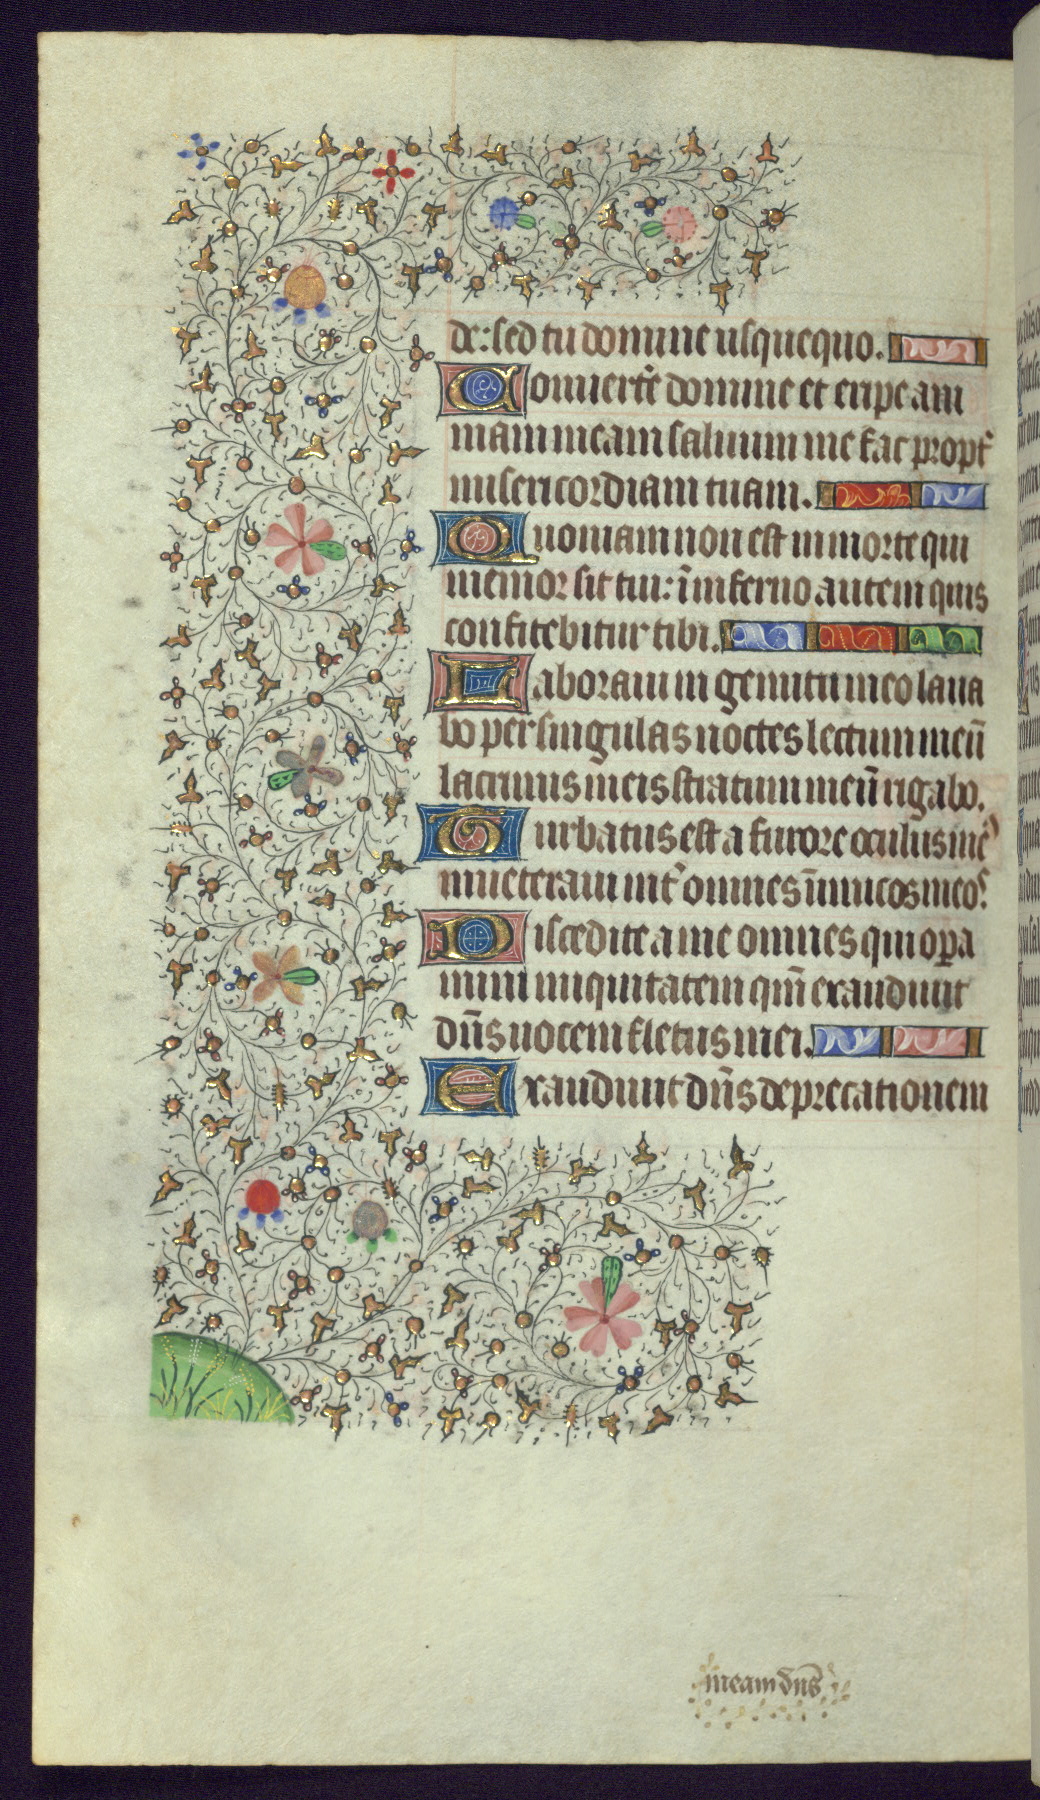 de: sed tu domine usquequo.
Conuerte domine et eripe am
mam meam saluum me fac propt
misericordiam tuam.
Quoniam non est in morte qui
memor sit tui: in inferno autem quis
confitebitur tibi.
Laboraui in gemitu meo laua
bo per singulas noctes lectum meū
lacrimis meis stratum meū rigabo.
Turbatus est a furore oculus me᾽
inueteraui int᾽ omnes inimicos meos.
Discedite a me omnes qui opa
mini iniquitatem qm̄ exaudiuit
dn̄s uocem fletus mei.
Exaudiuit dn̄s deprecationem
meam dn̄s